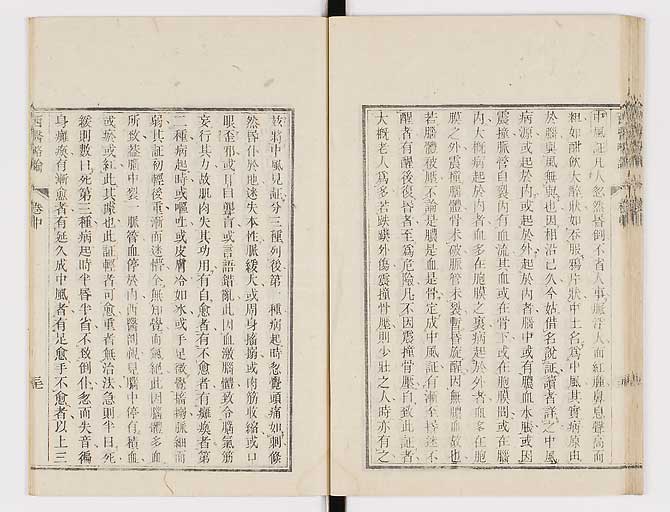 中風証凡人忽然昏倒不省人事脈浮大面紅鼻息聲高而
粗如酣飲大醉狀如吞服鴉片狀中土名爲中風其實病原由
於腦與風無與也因相沿已久今姑借名說証讀者詳之中風
病源或起於內或起於外起於內者腦中或有膿血水脹或因
震撞脈管自裂內有血流其血或在骨下或在胞膜間或在腦
內大概病起於內者血多在胞膜之裏病起於外者血多在胞
膜之外震撞腦體骨未破脈管未裂暫昏旋醒因無體血故也
若腦體被壓不論是膿是血是骨定成中風証有漸至昏迷不
醒者有醒後復昏者至爲危險凡不因震撞骨壓自致此証者
大概老人爲多若跌蹼外傷震撞骨壓則少壯之人時亦有之
茲將中風見証分三種列後第一種病起時忽覺頭痛如刺倏
然昏仆於地迷失本性脈緩大或周身搐搦或肉筋收縮或口
眼歪邪或耳目聾盲或言語錯亂此因血激腦體致令腦氣筋
妄行其力故肌肉失其功用有自愈者有不愈者有癱瘓者第
二種病起時或嘔吐或皮膚冷如冰或手足微覺搐搦脈細而
弱其証初輕後重漸而迷悟全無知覺而氣絕此因腦體多血
所致蓋腦中裂一脈管血停於內西醫剖視見腦中停有積血
或瘀或紅此其據也此証輕者可愈重者無治法急則半日死
緩則數日死第三種病起時半昏半省不致倒仆忽而失音徧
身癱瘓有漸愈者有延久成中風者有足愈手不愈者以上三
西醫畧論
卷中